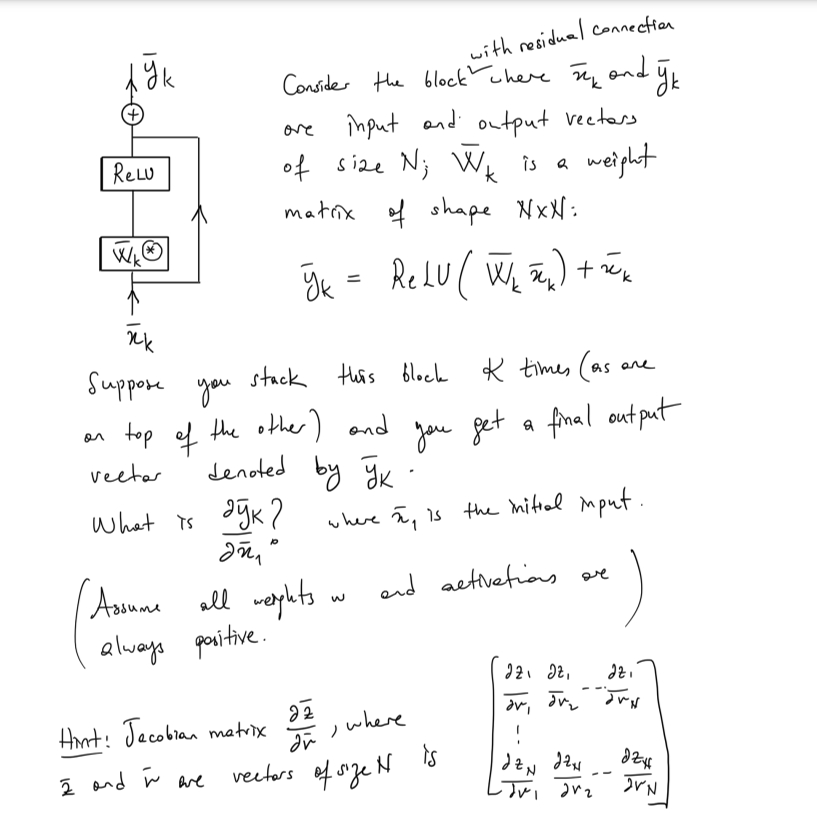 ȳₖ
+
ReLU
W̄ₖ ⊛
x̄ₖ
with residual connection
Consider the block where x̄ₖ and ȳₖ
are input and output vectors
of size N; W̄ₖ is a weight
matrix of shape N×N:
ȳₖ = ReLU( W̄ₖ x̄ₖ ) + x̄ₖ
Suppose you stack this block K times (as one
on top of the other) and you get a final output
vector denoted by ȳ_K.
What is ∂ȳ_K/∂x̄₁? where x̄₁ is the initial input.
(Assume all weights w and activations are
always positive.)
Hint: Jacobian matrix ∂z̄/∂r̄, where
z̄ and r̄ are vectors of size N is
[ ∂z₁/∂r₁ ∂z₁/∂r₂ --- ∂z₁/∂r_N
⋮
∂z_N/∂r₁ ∂z_N/∂r₂ -- ∂z_N/∂r_N ]